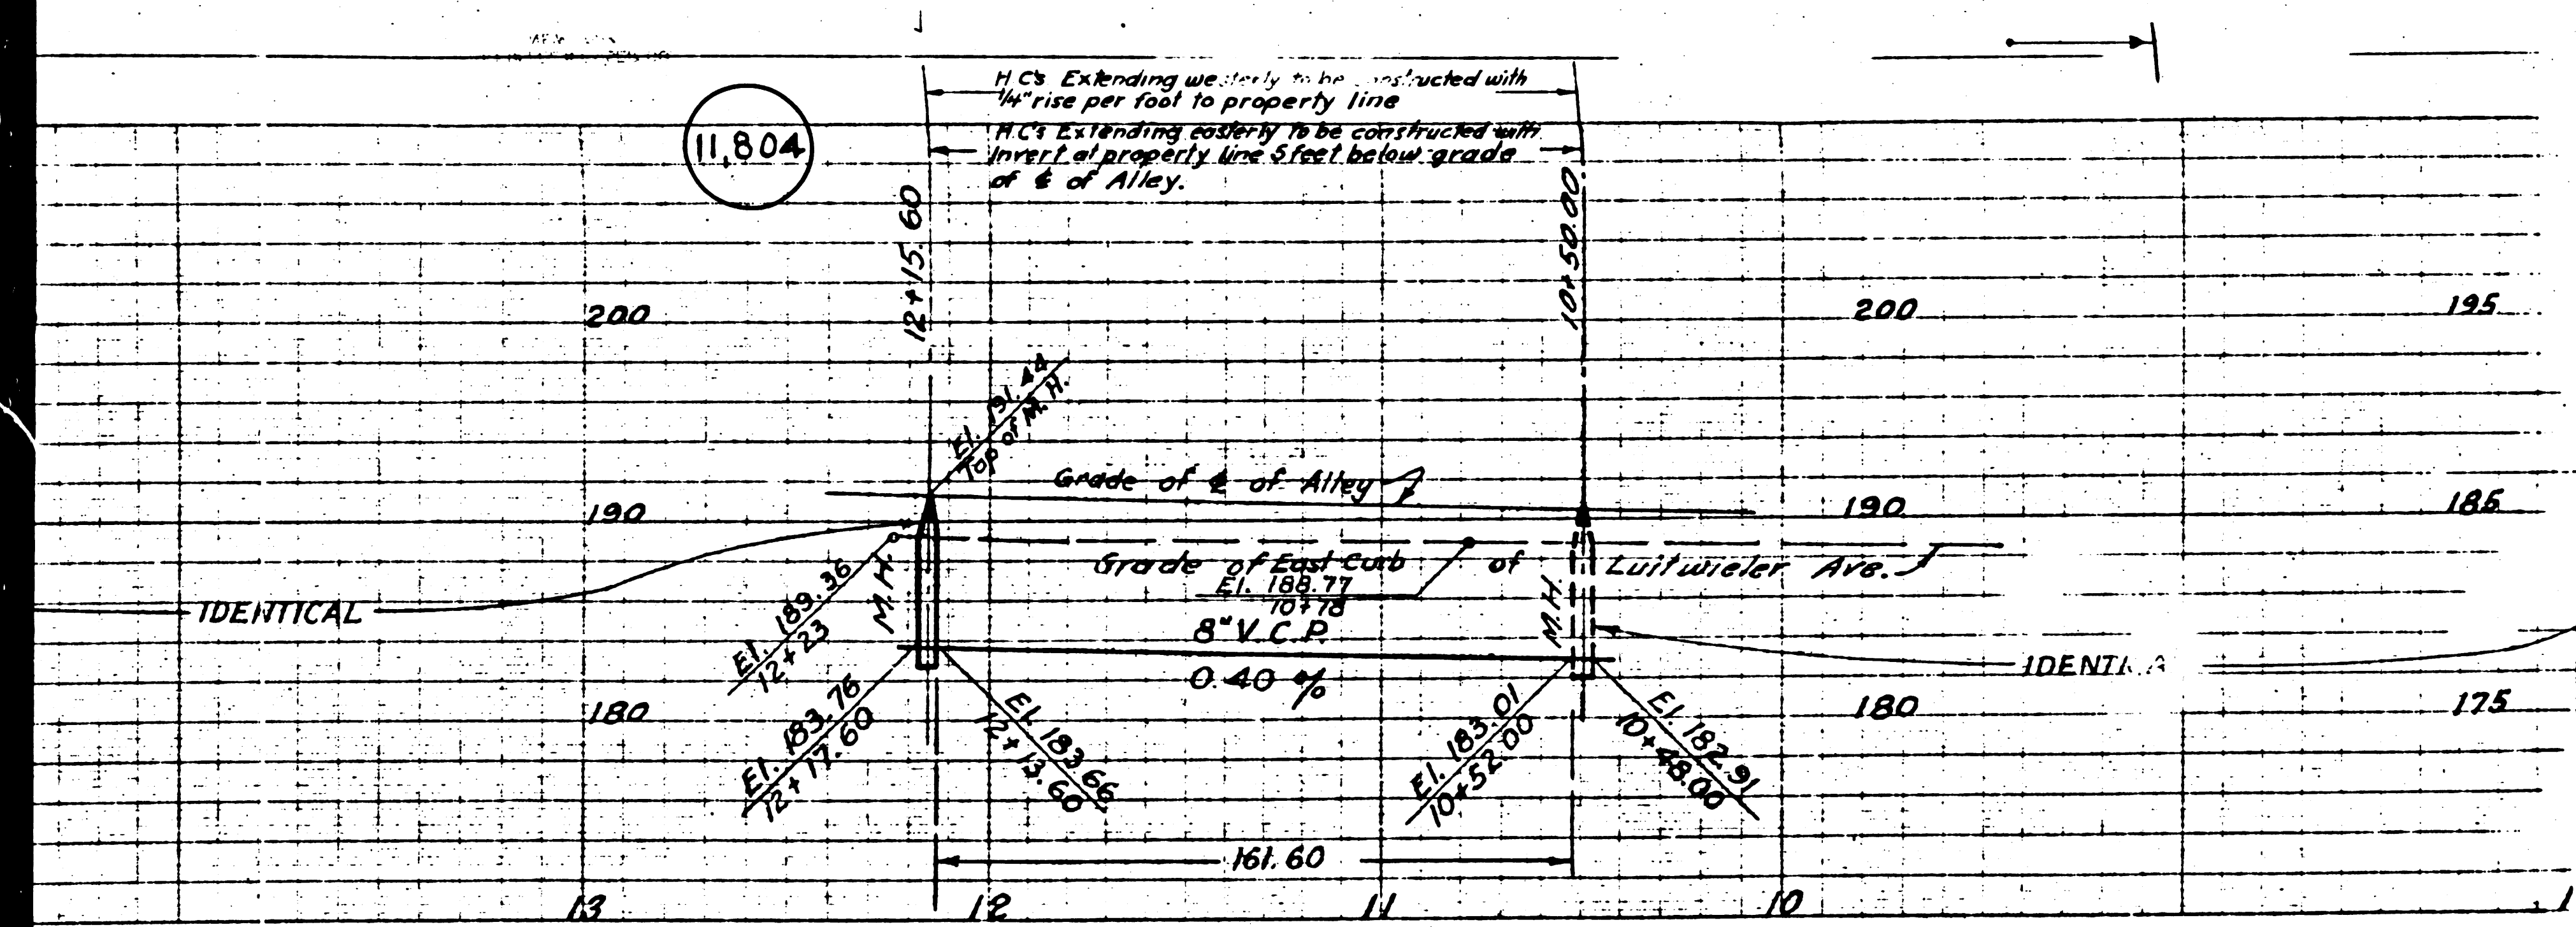 H.C's Extending westerly to be constructed with
1/4" rise per foot to property line
11,804
H.C's Extending easterly to be constructed with
Invert at property line 5 feet below grade
of ℄ of Alley.
12+15.60
10+50.00
200
200
195
El. 191.44
Top of M.H.
Grade of ℄ of Alley
190
190
185
Grade of East Curb of Luitwieler Ave.
El. 188.77
10+78
El. 189.36
12+23
M.H.
M.H.
IDENTICAL
8" V.C.P.
0.40 %
180
180
175
El. 183.76
12+17.60
El. 183.66
12+13.60
El. 183.01
10+52.00
El. 182.91
10+48.00
161.60
13
12
11
10